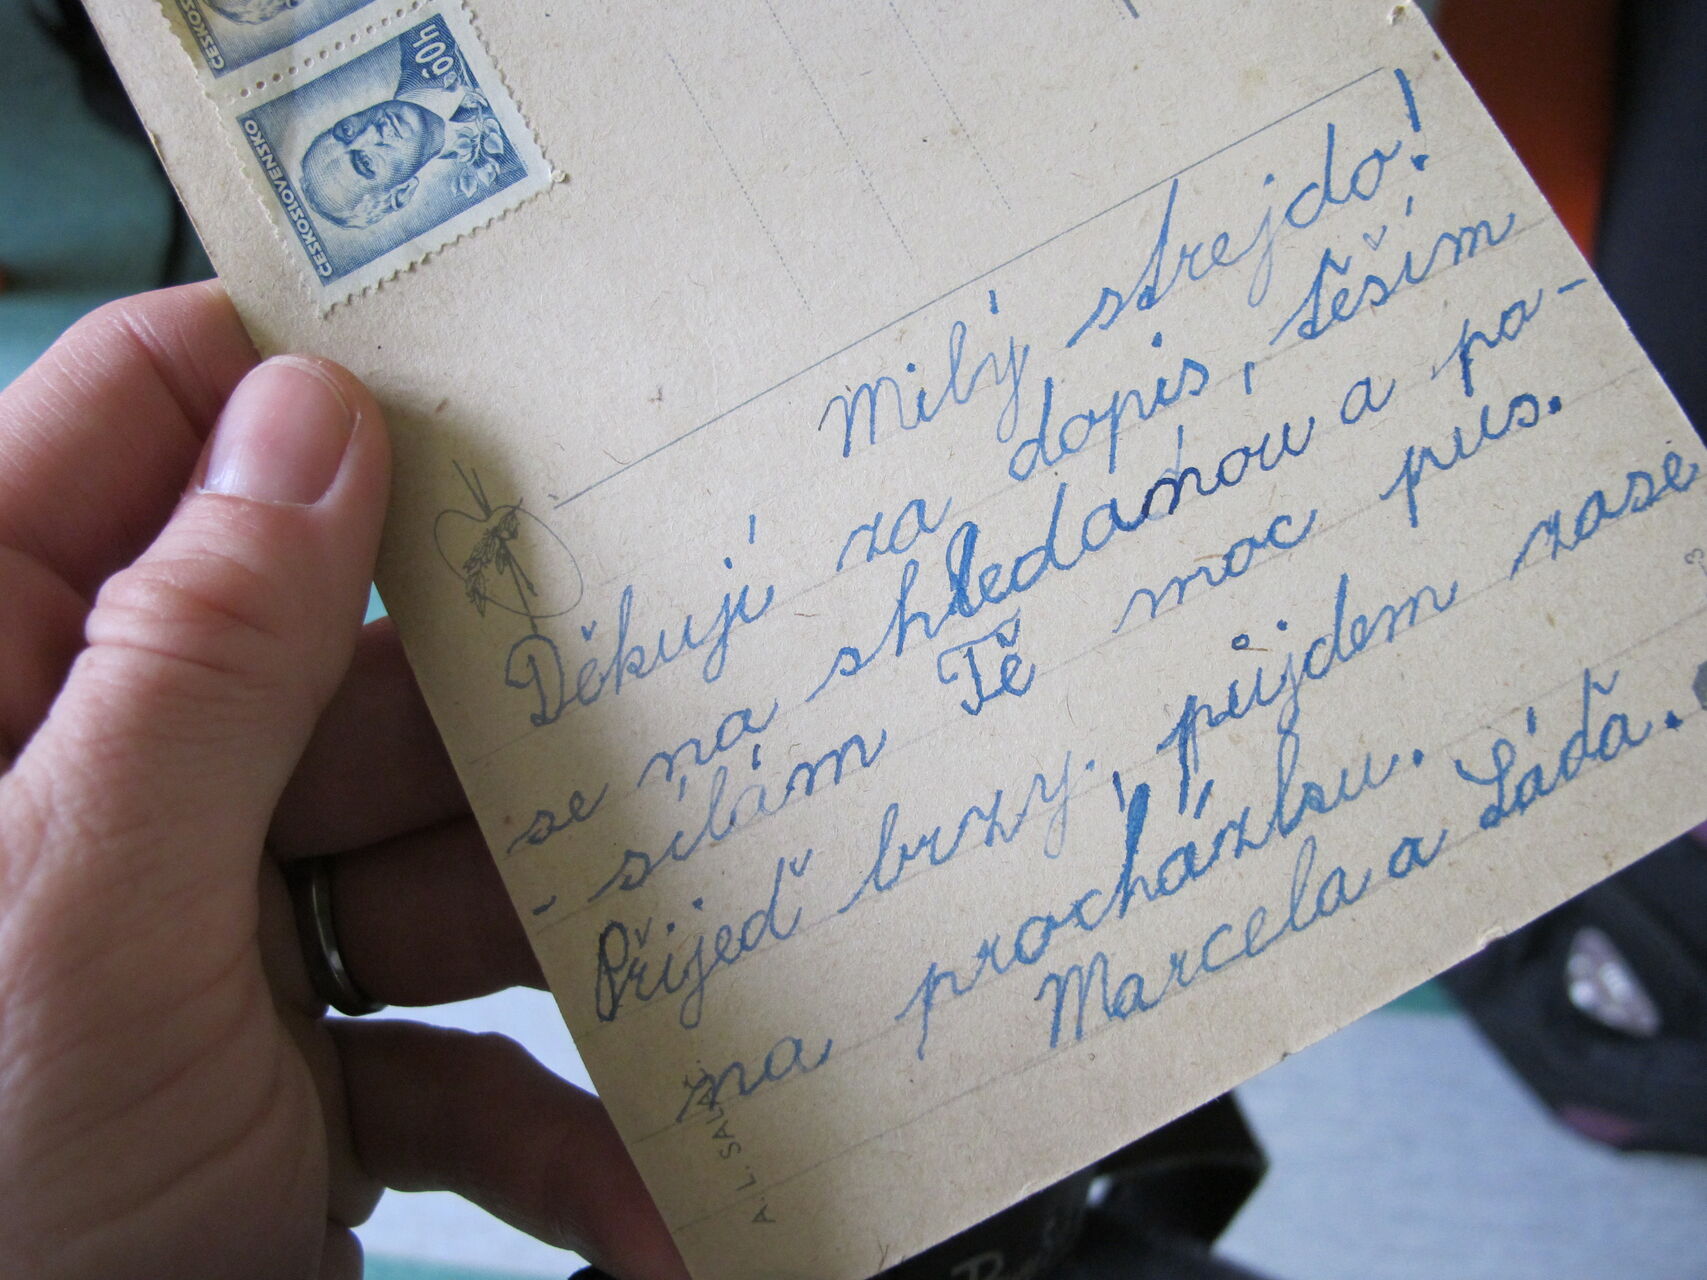 ČESKOS
ČESKOSLOVENSKO
60h
Milý strejdo!
Děkuji za dopis, těším
se na shledánou a po-
- sílám Tě moc pus.
Přijeď brzy, půjdem zase
na procházku.
Marcela a Láďa.
A. L. SALAČ